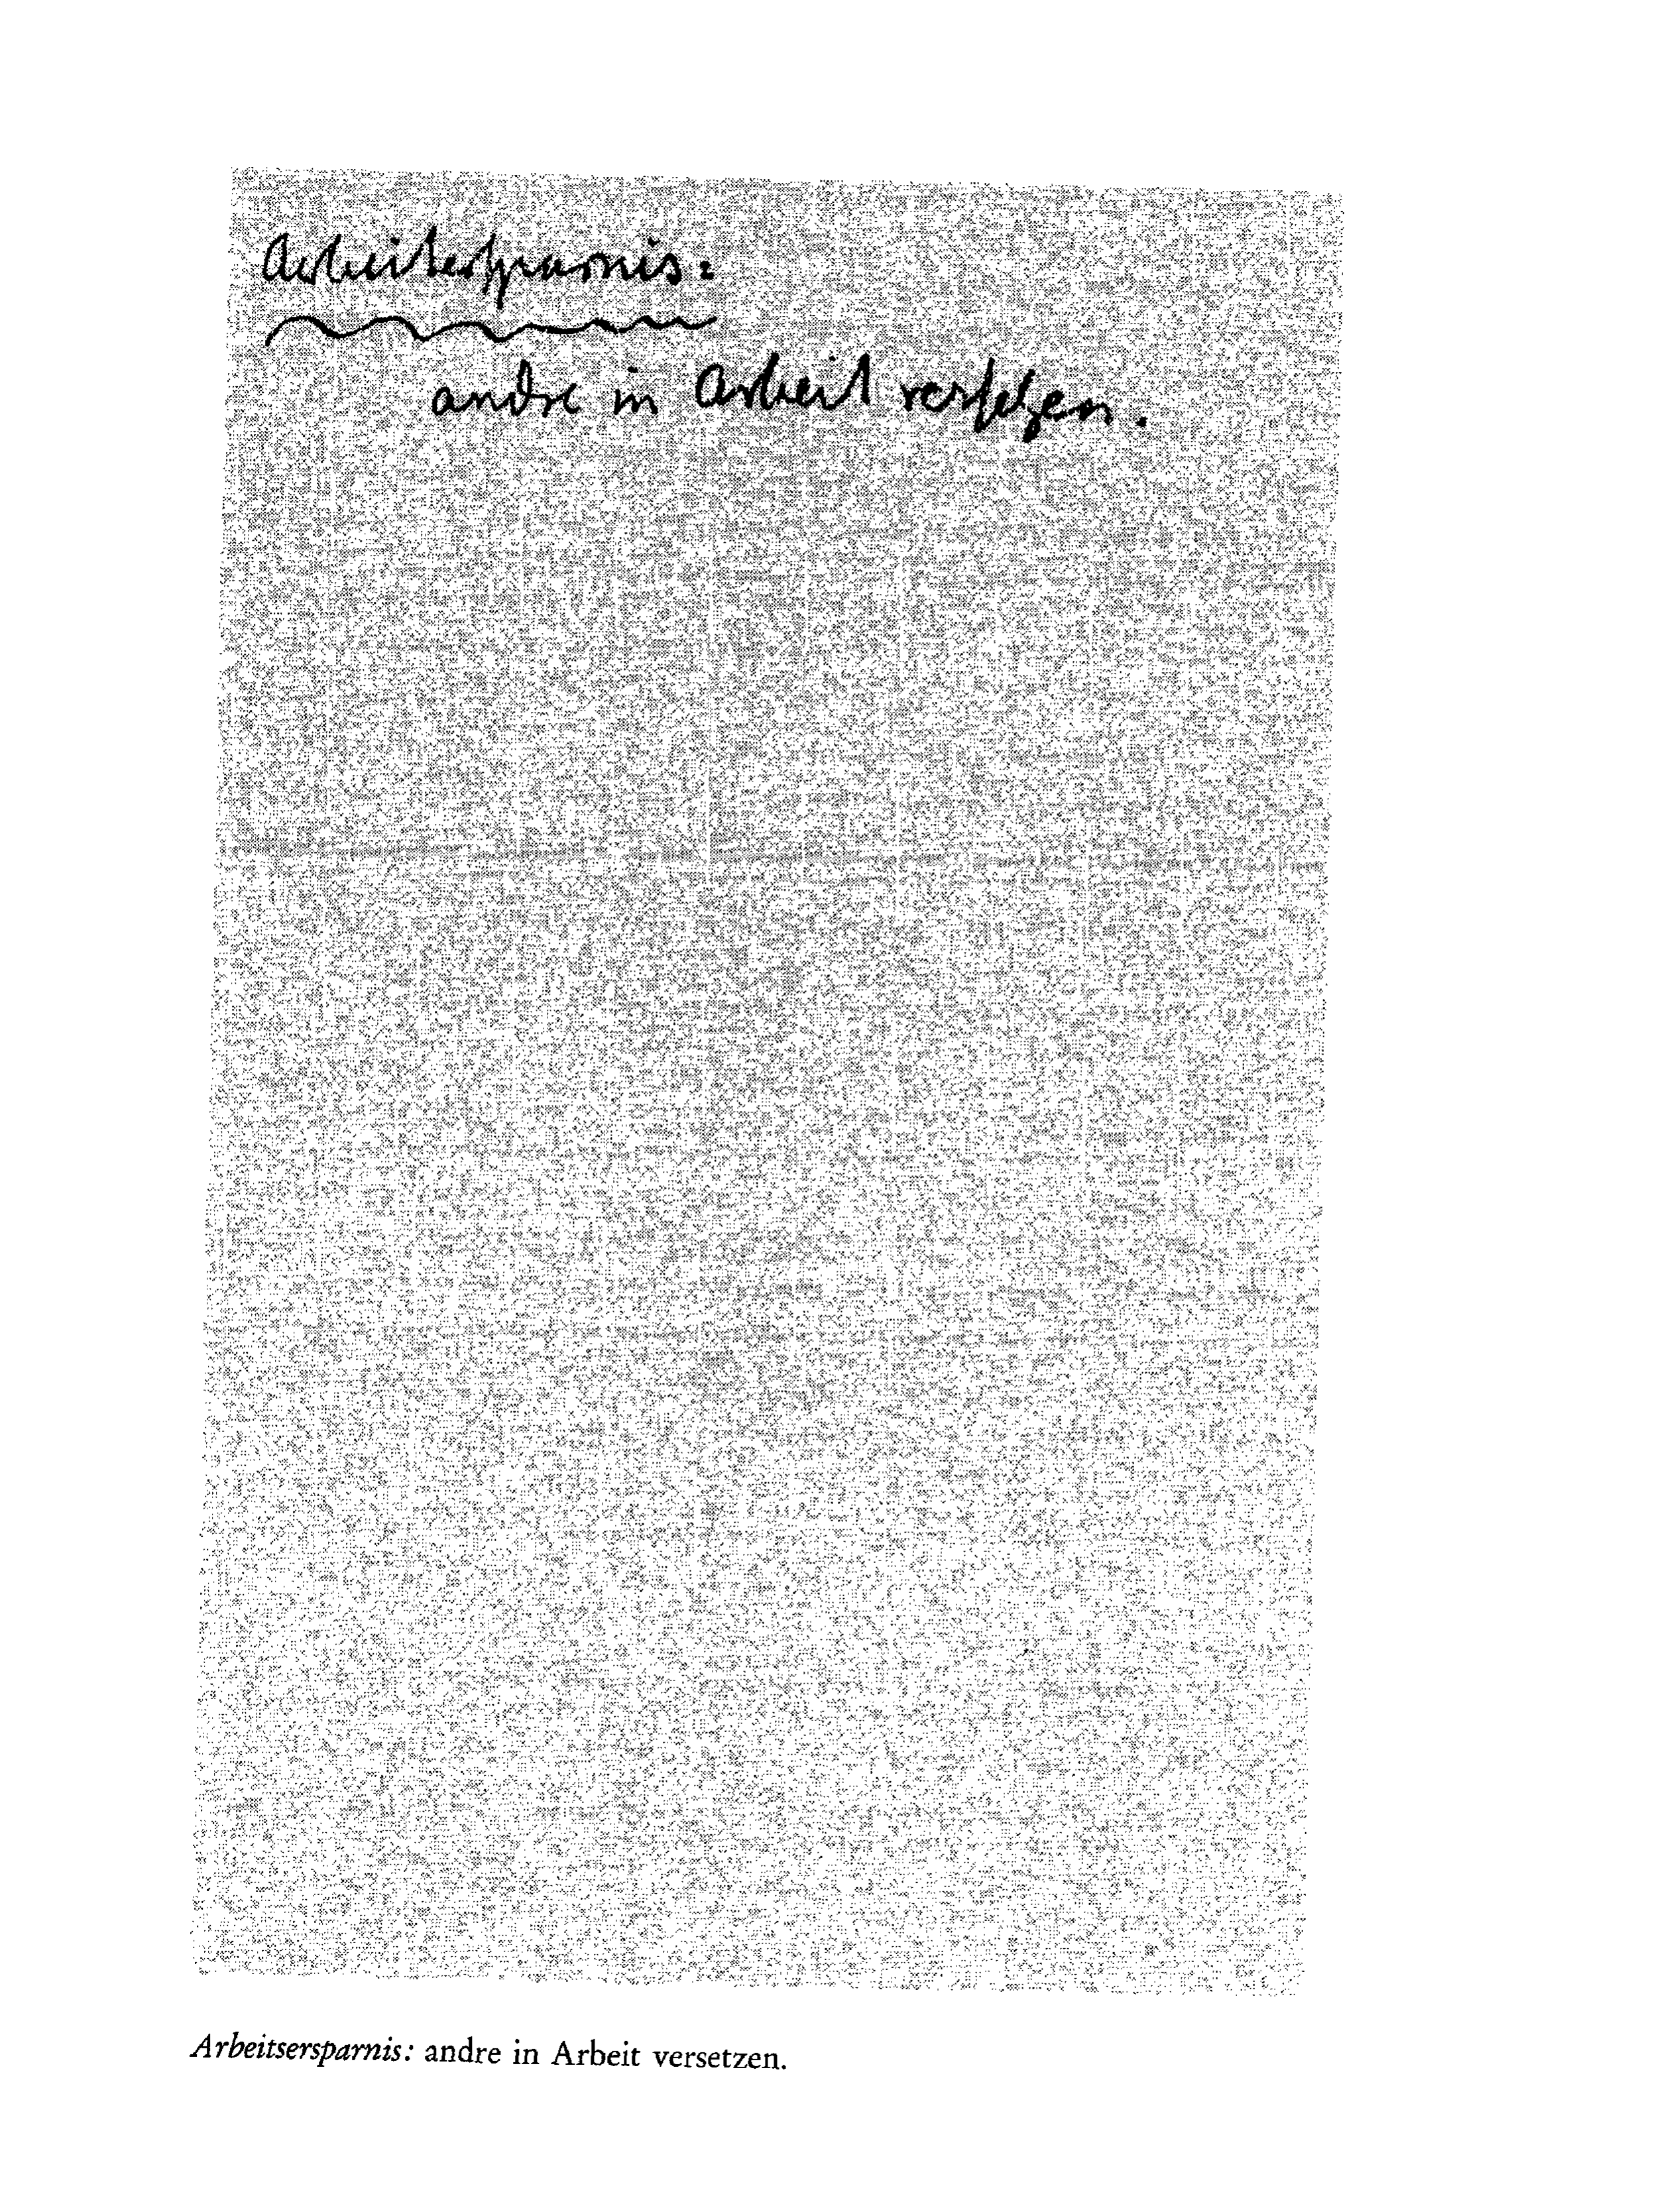 Arbeitersparnis:
andre in Arbeit versetzen.
Arbeitsersparnis: andre in Arbeit versetzen.